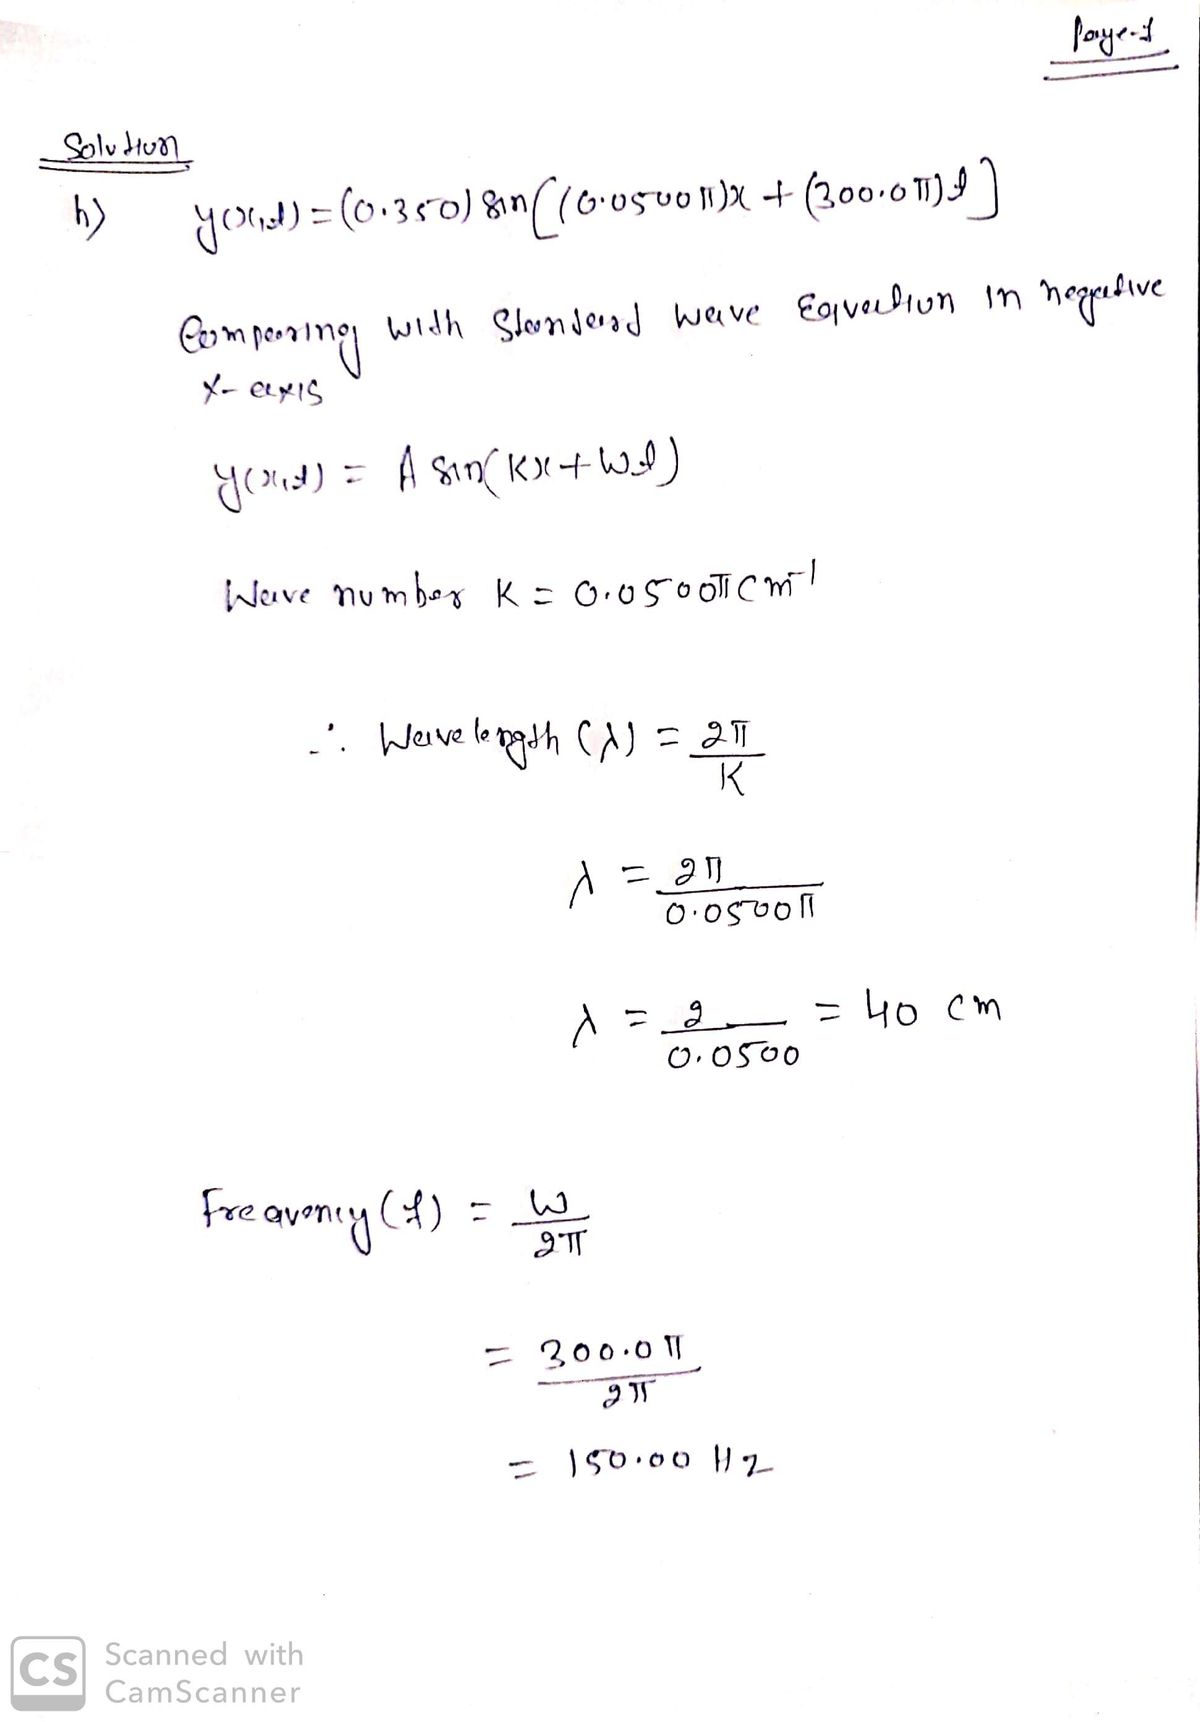 Page-1
Solution
h) y(x,t) = (0.350) sin[(0.0500π)x + (300.0π)t]
Comparing with Standard wave Equation in negative
x-axis
y(x,t) = A sin(Kx + Wt)
Wave number K = 0.0500π cm⁻¹
∴ Wavelength (λ) = 2π
K
λ = 2π
0.0500π
λ = 2 = 40 cm
0.0500
Frequency (f) = W
2π
= 300.0π
2π
= 150.00 Hz
CS Scanned with
CamScanner